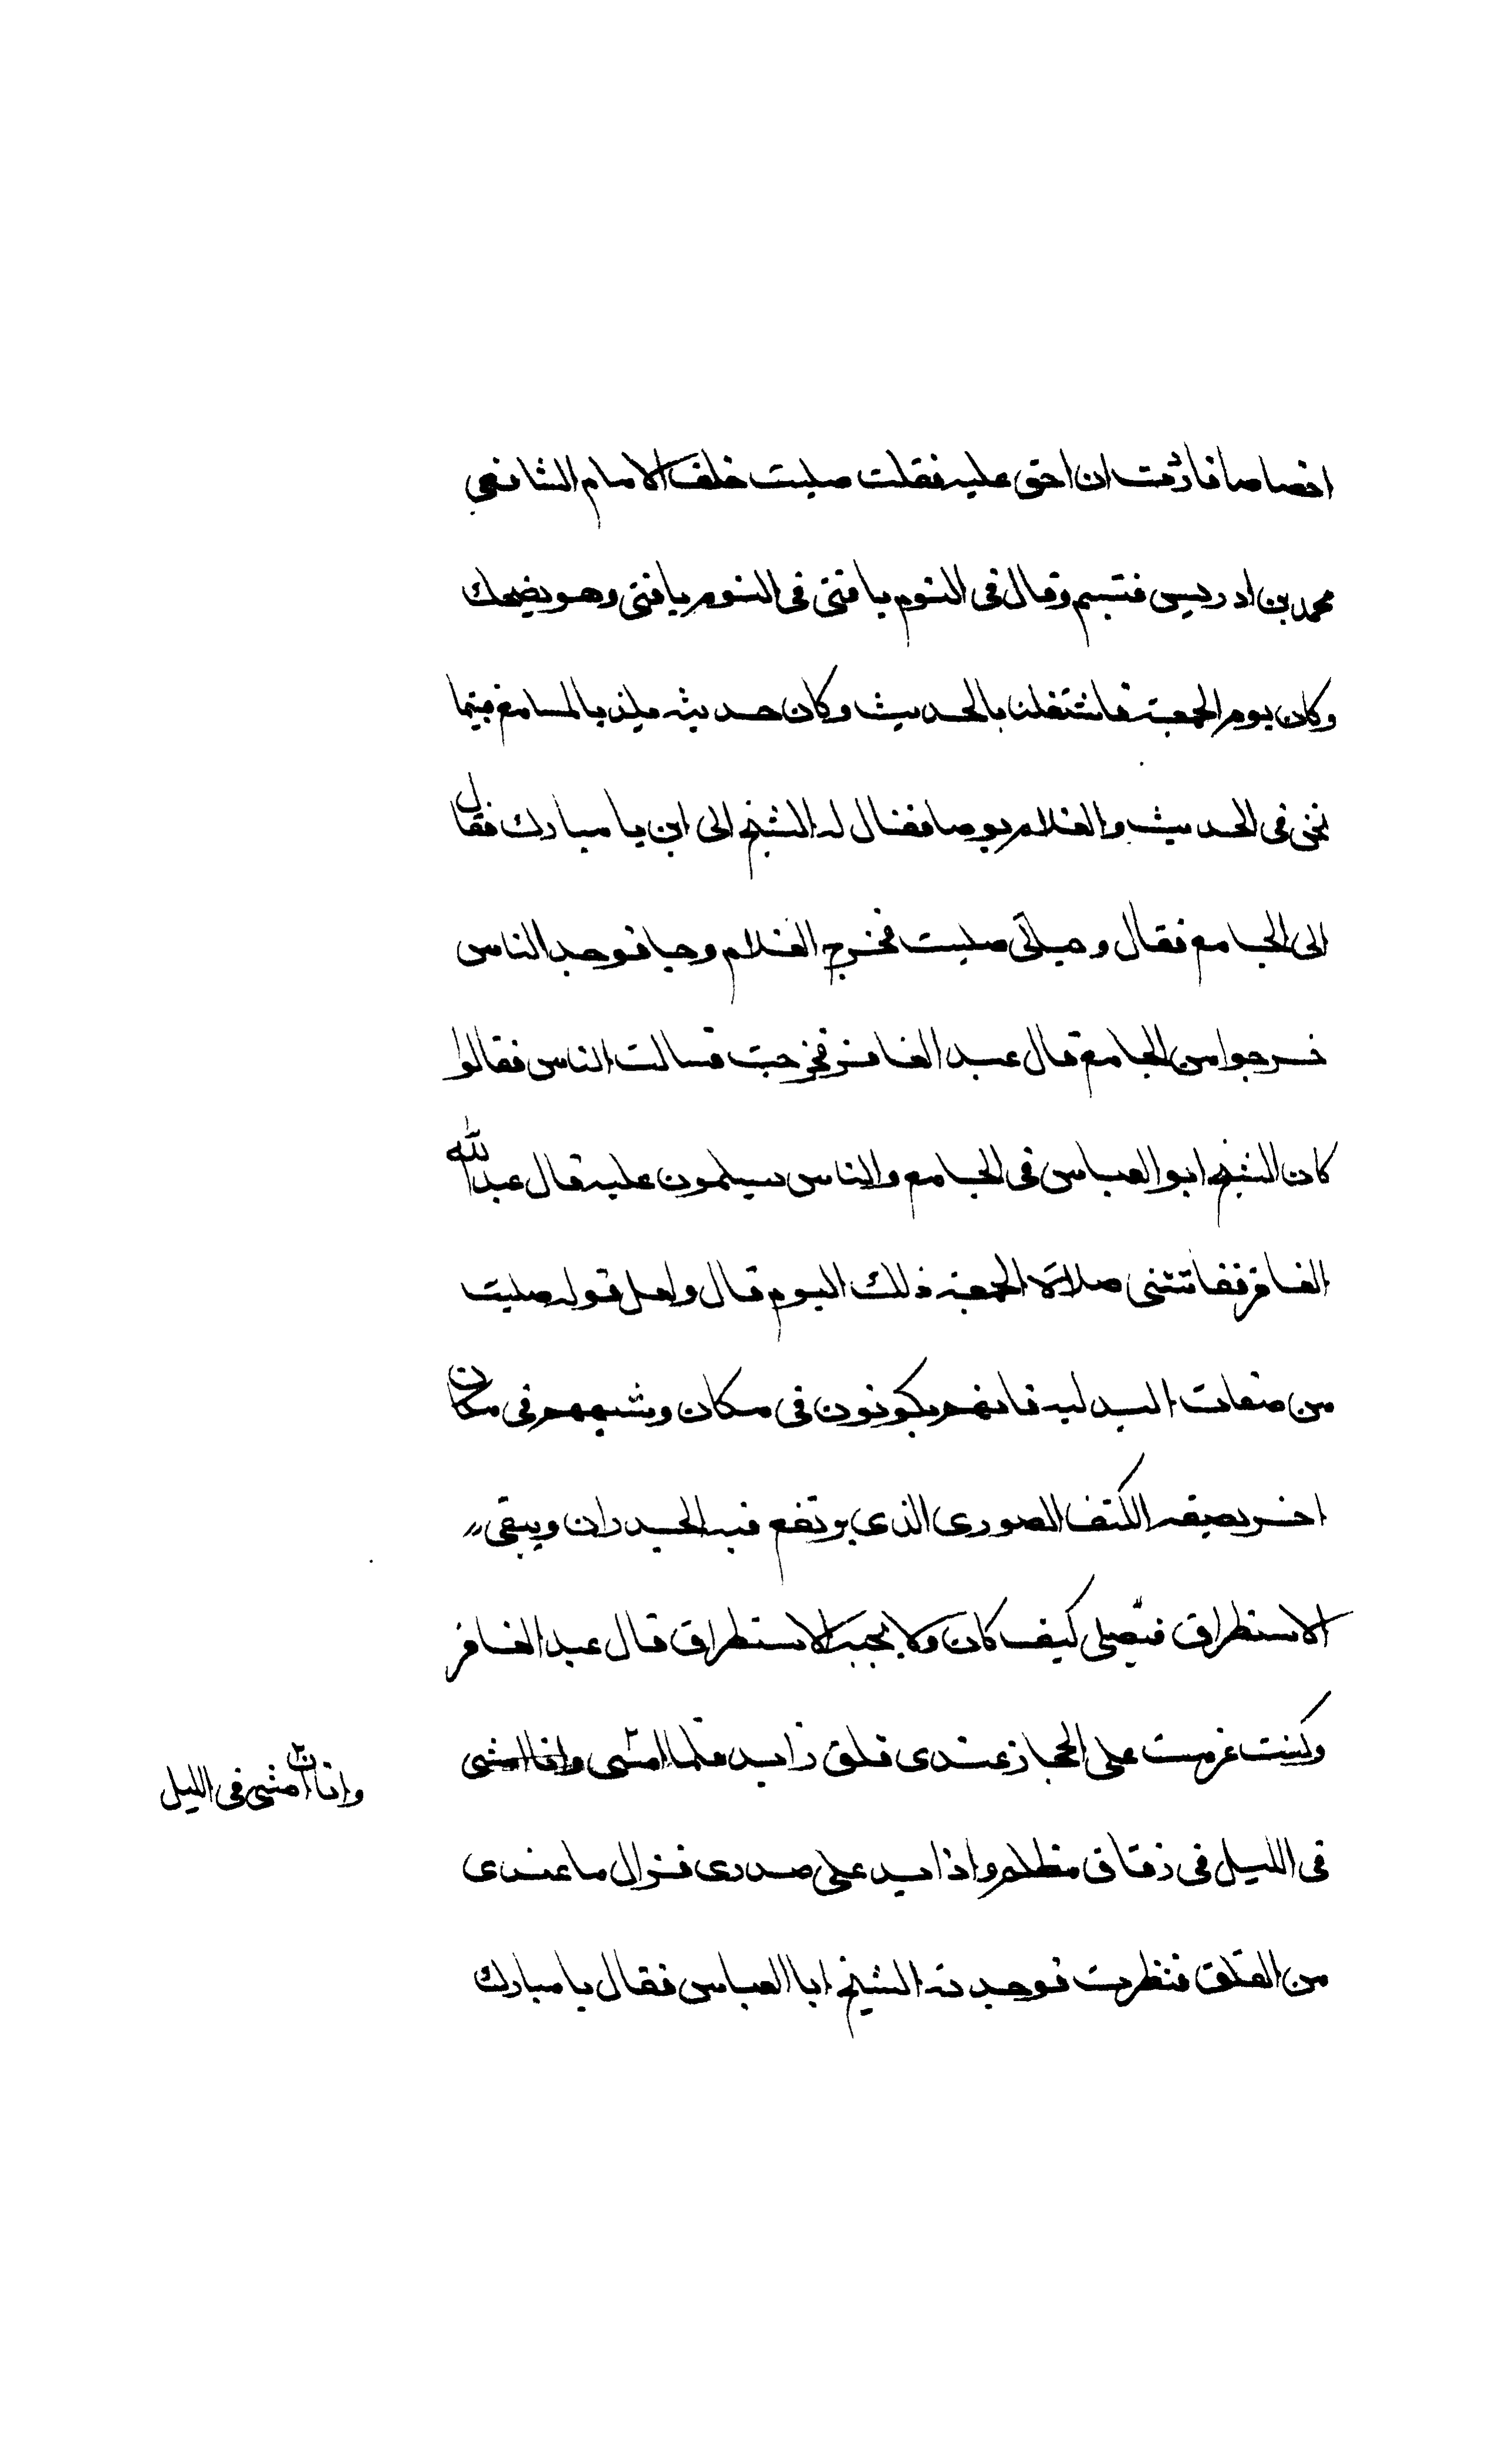 اخصاصا فاردت ان احق عليه فقلت صليت خلف الامام الشافعي
محمد بن ادريس فتبسم وقال فى النوم يا فتى فى النوم يا فتى وهو يضحك
وكان يوم الجمعة فاشتغلنا بالحديث وكان حديثه يلذ بالمسامع فبينما
نحن فى الحديث والغلام يوصا فقال له الشيخ الى اين يا مبارك فقال
الى الجامع فقال وحياتى صليت فخرج الغلام وجا فوجد الناس
خرجوا من الجامع قال عبد الغافر فخرجت فسالت الناس فقالوا
كان الشيخ ابو العباس فى الجامع والناس يسلمون عليه قال عبد الله
الغافر ففاتتنى صلاة الجمعة ذلك اليوم قال ولعل قوله صليت
من صفات البدليه فانهم يكونون فى مكان وشبههم فى مكان
اخر بصيفه الكشف الصورى الذى يرتفع فيه الجدران ويبقى
الاستطراق فيصلى كيف كان ولا يحجبه الاستطراق قال عبد الغافر
وكنت عزمت على الحجاز عندى قلق زايد فلما امشى وانا امشى
وانا امشى فى الليل
فى الليل فى زقاق مظلم واذا يد على صدرى فزال ما عندى
من القلق فنظرت فوجدته الشيخ ابا العباس فقال يا مبارك